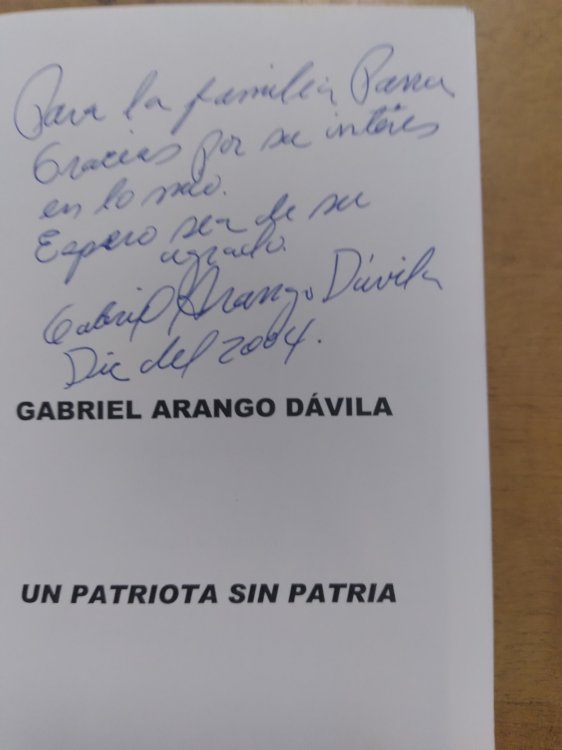 Para la familia Parra
Gracias por su interés
en lo mío.
Espero sea de su
agrado.
Gabriel Arango Dávila
Dic del 2004.
GABRIEL ARANGO DÁVILA
UN PATRIOTA SIN PATRIA